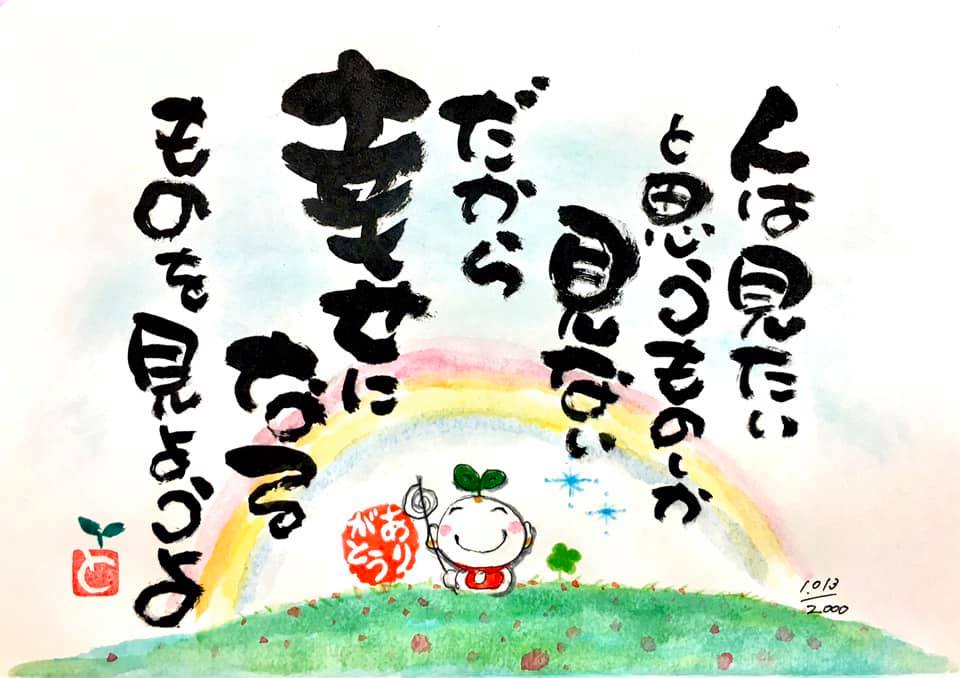 人は見たい
と思うものしか
見ない
だから
幸せに
なる
ものを見ようよ
ありがとう
と
1.013
2000